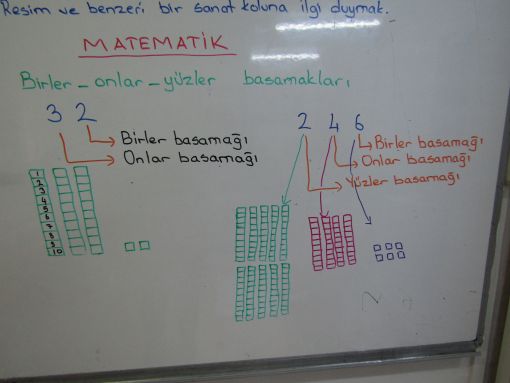 Resim ve benzeri bir sanat koluna ilgi duymak.
MATEMATİK
Birler - onlar - yüzler basamakları
3 2
Birler basamağı
Onlar basamağı
1
2
3
4
5
6
7
8
9
10
2 4 6
Birler basamağı
Onlar basamağı
Yüzler basamağı